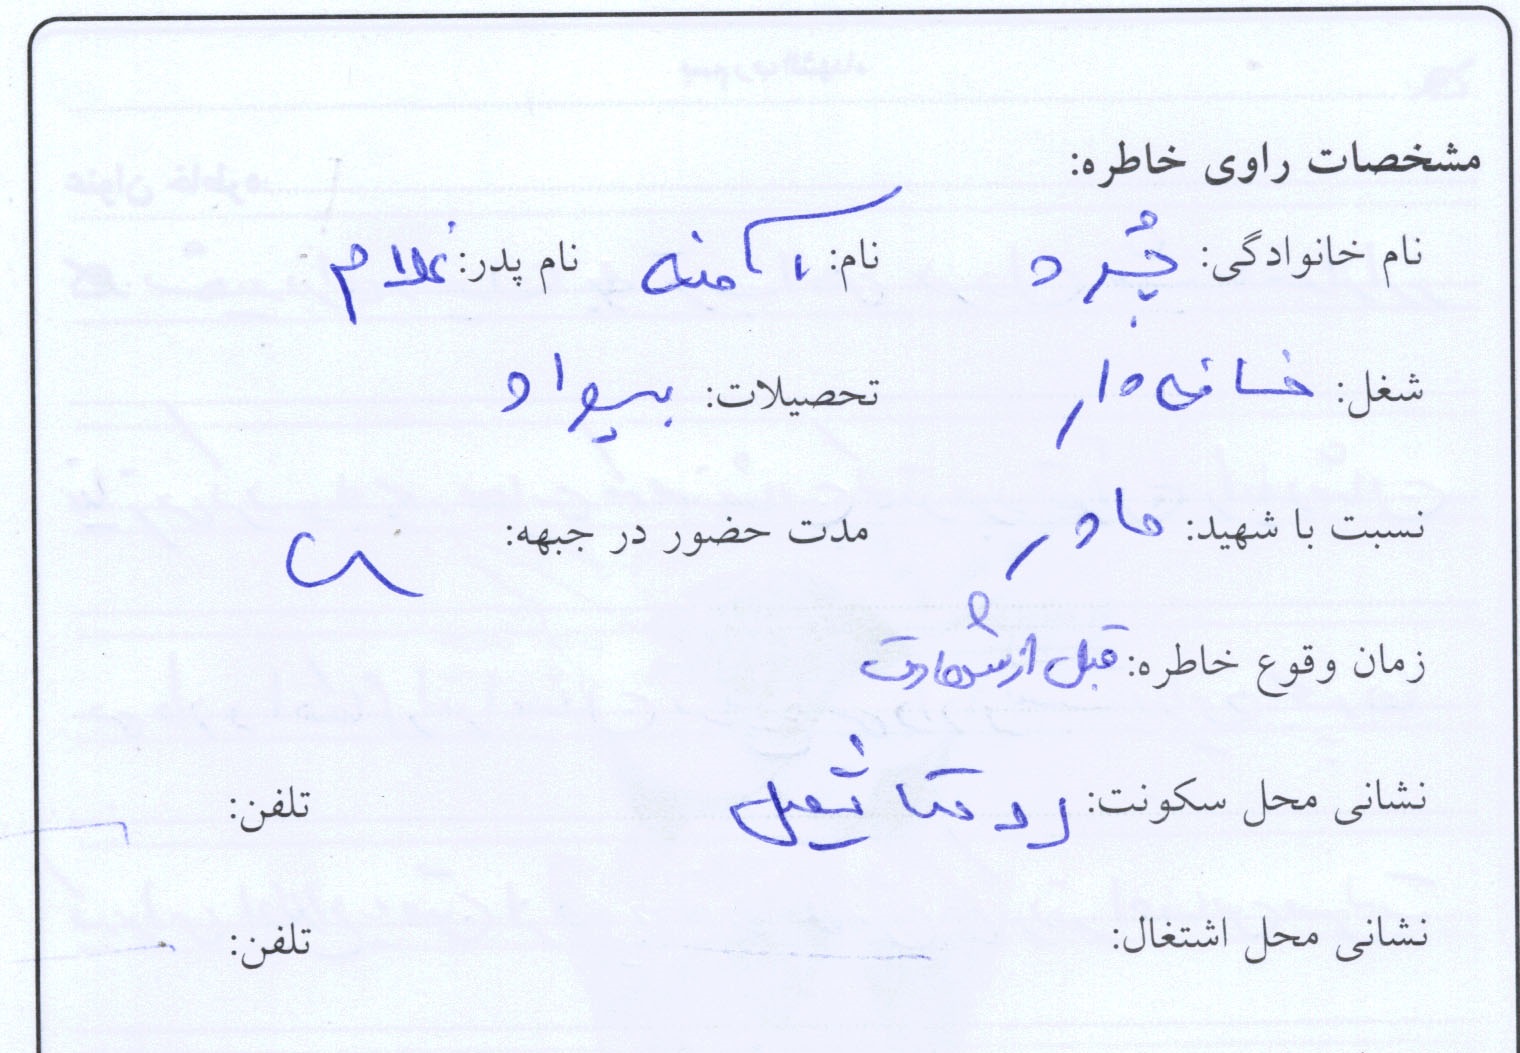 مشخصات راوی خاطره:
نام خانوادگی: نام: آمنه نام پدر: غلام
شغل: خانه دار تحصیلات: بیسواد
نسبت با شهید: مادر مدت حضور در جبهه:
زمان وقوع خاطره: قبل از شهادت
نشانی محل سکونت: روستا تلفن:
نشانی محل اشتغال: تلفن: